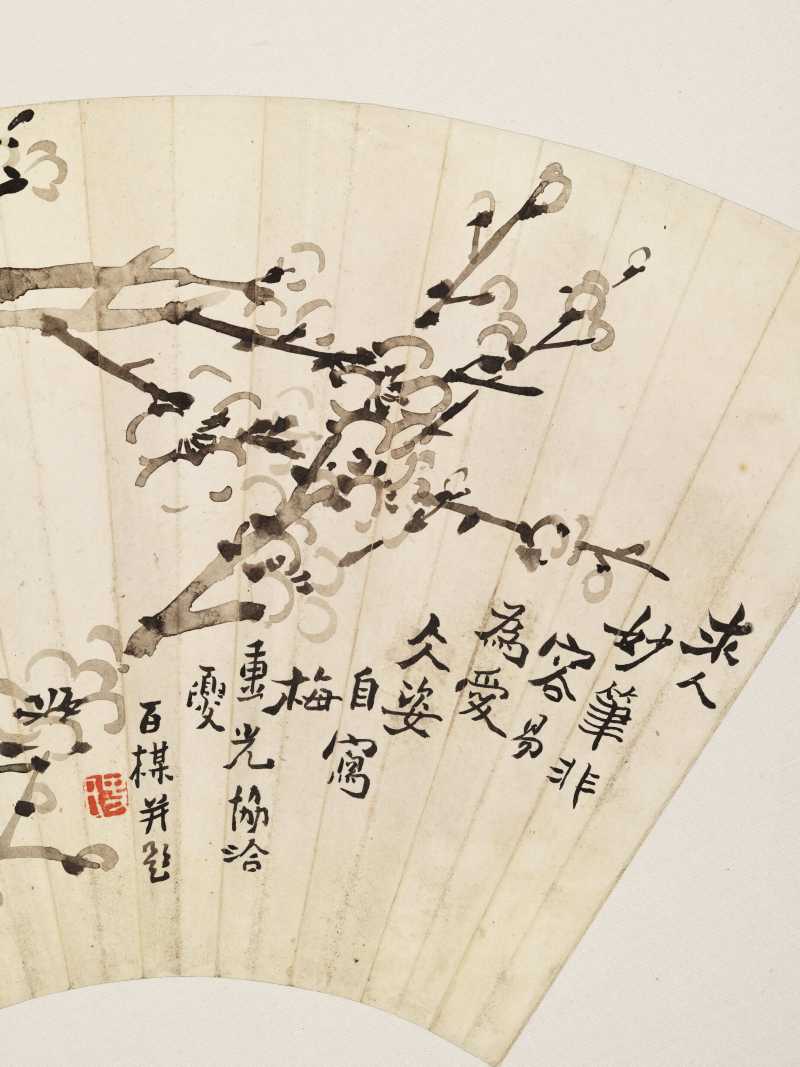 求人
妙筆非
容易
為愛
仌姿
自寫
梅
重光協洽
百楳并題